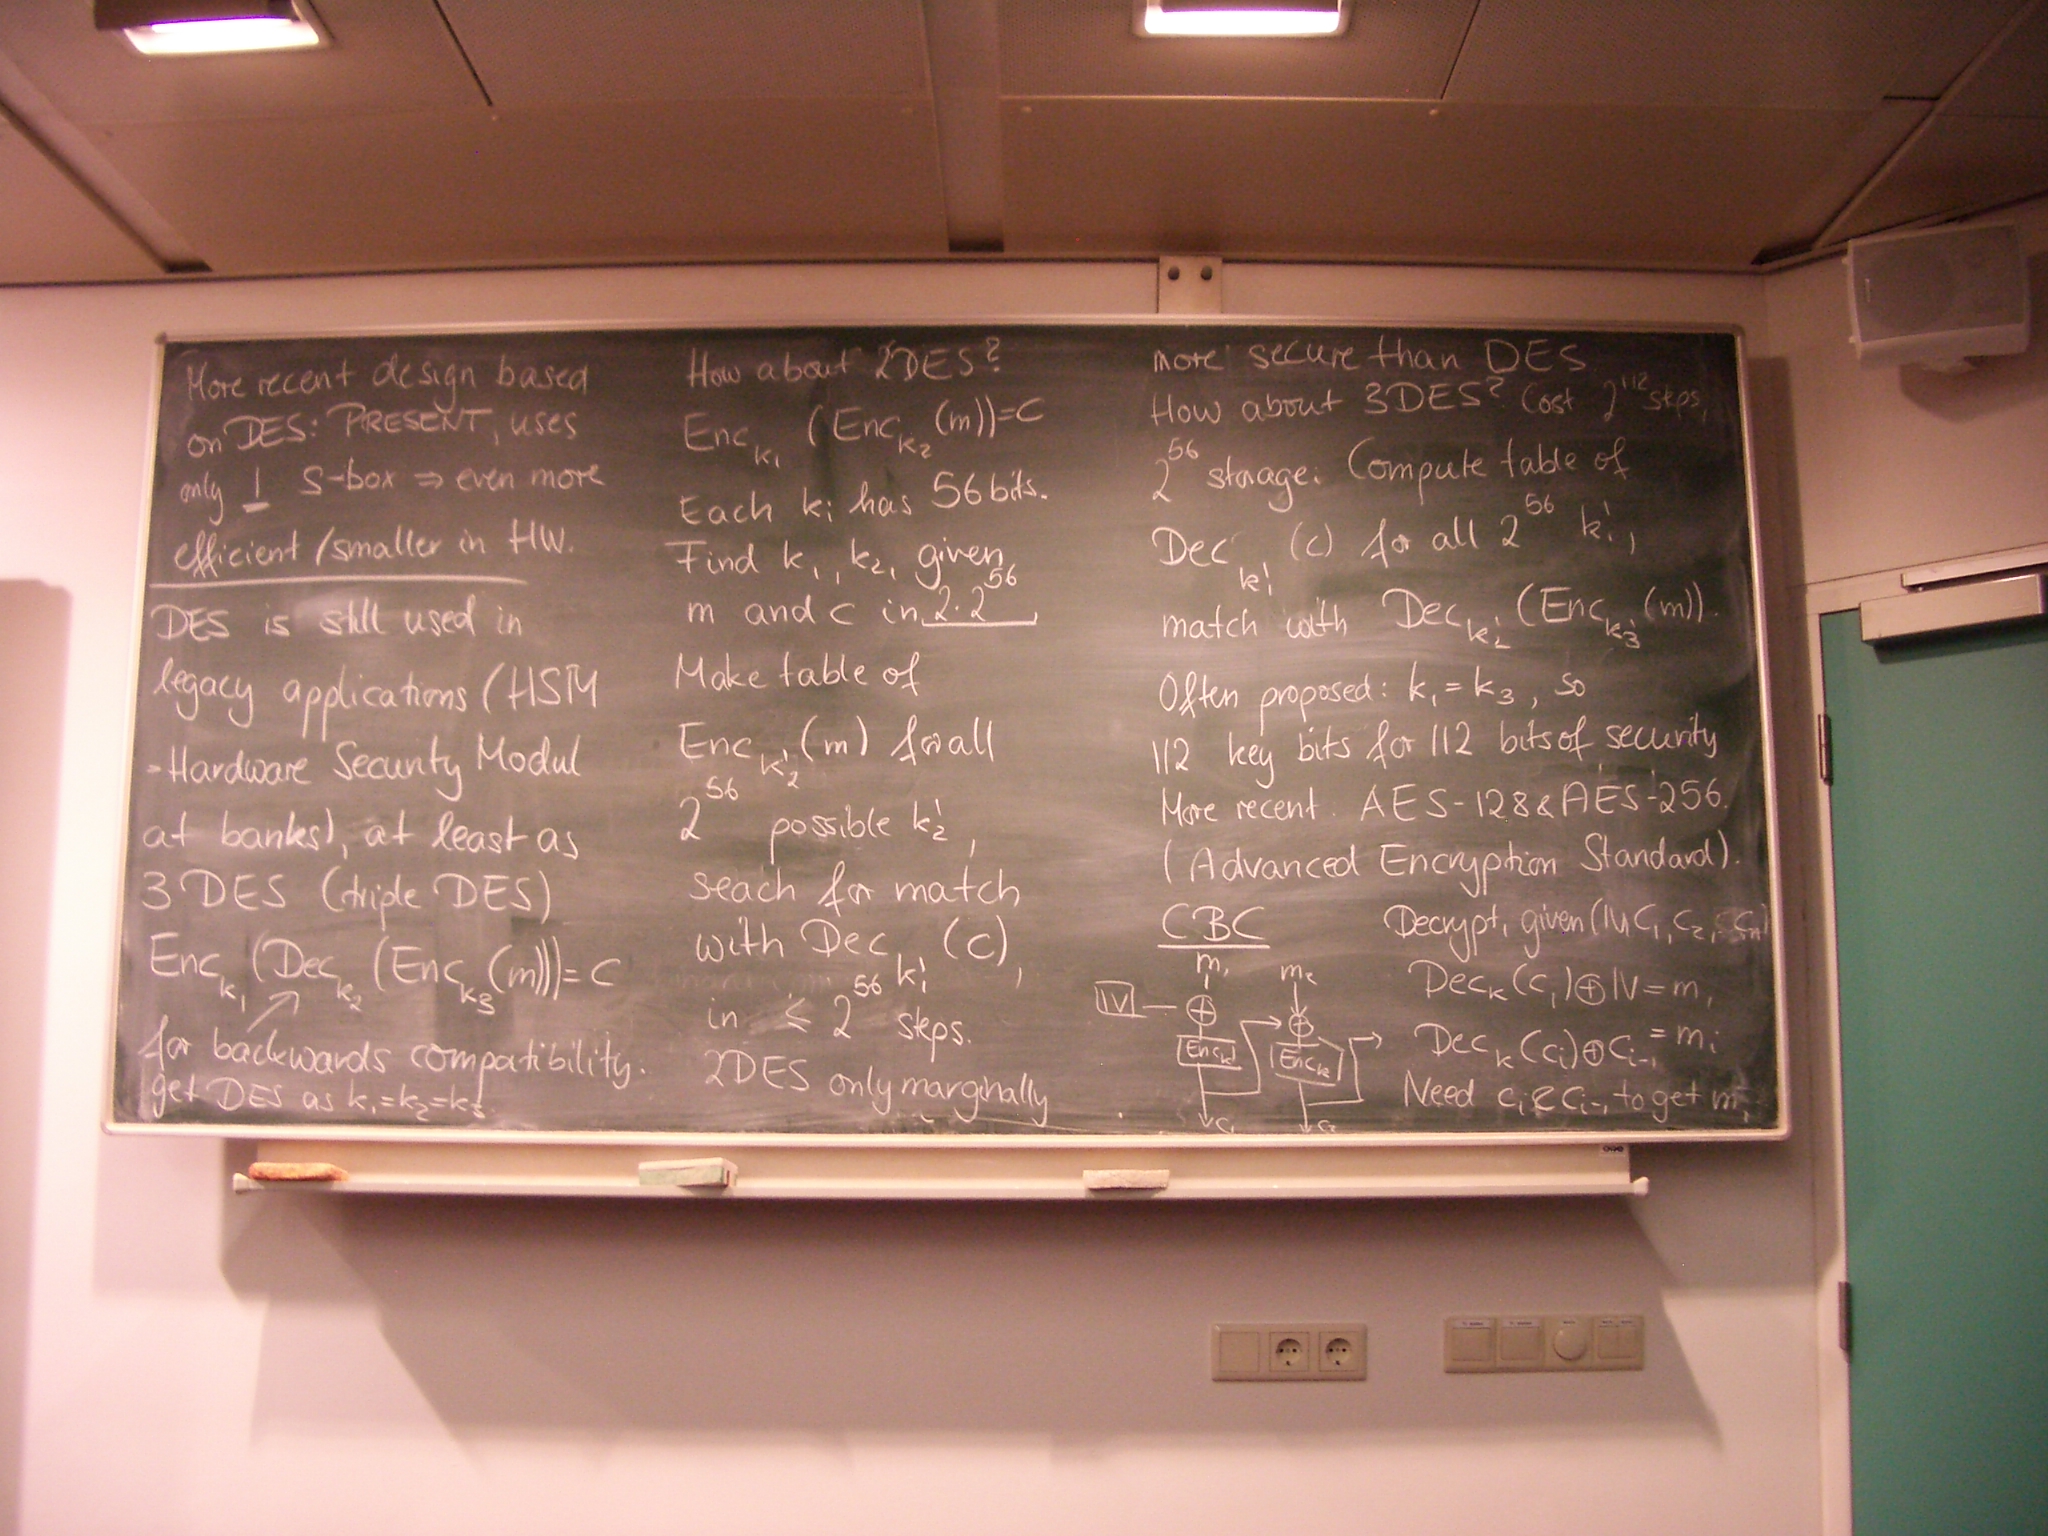 More recent design based
on DES: PRESENT, uses
only 1 S-box ⇒ even more
efficient/smaller in HW.
DES is still used in
legacy applications (HSM
-Hardware Security Modul
at banks), at least as
3 DES (triple DES)
Enc_k₁ (Dec_k₂ (Enc_k₃ (m))) = C
for backwards compatibility.
get DES as k₁=k₂=k₃.
How about 2DES?
Enc_k₁ (Enc_k₂ (m)) = C
Each kᵢ has 56 bits.
Find k₁, k₂, given
m and c in 2·2⁵⁶
Make table of
Enc_k₂' (m) for all
2⁵⁶ possible k₂',
seach for match
with Dec_k₁' (c),
in ≤ 2⁵⁶ steps.
2DES only marginally
more secure than DES.
How about 3DES? Cost 2¹¹² steps,
2⁵⁶ storage: Compute table of
Dec_k₁' (c) for all 2⁵⁶ k₁',
match with Dec_k₂' (Enc_k₃' (m)).
Often proposed: k₁ = k₃, so
112 key bits for 112 bits of security
More recent: AES-128 & AES-256.
(Advanced Encryption Standard).
CBC
m₁ m₂
IV ⊕ ⊕
Enc_k Enc_k
c₁ c₂
Decrypt, given (IV, C₁, C₂, … Cₙ)
Dec_k (c₁) ⊕ IV = m₁
Dec_k (cᵢ) ⊕ cᵢ₋₁ = mᵢ
Need cᵢ & cᵢ₋₁ to get mᵢ